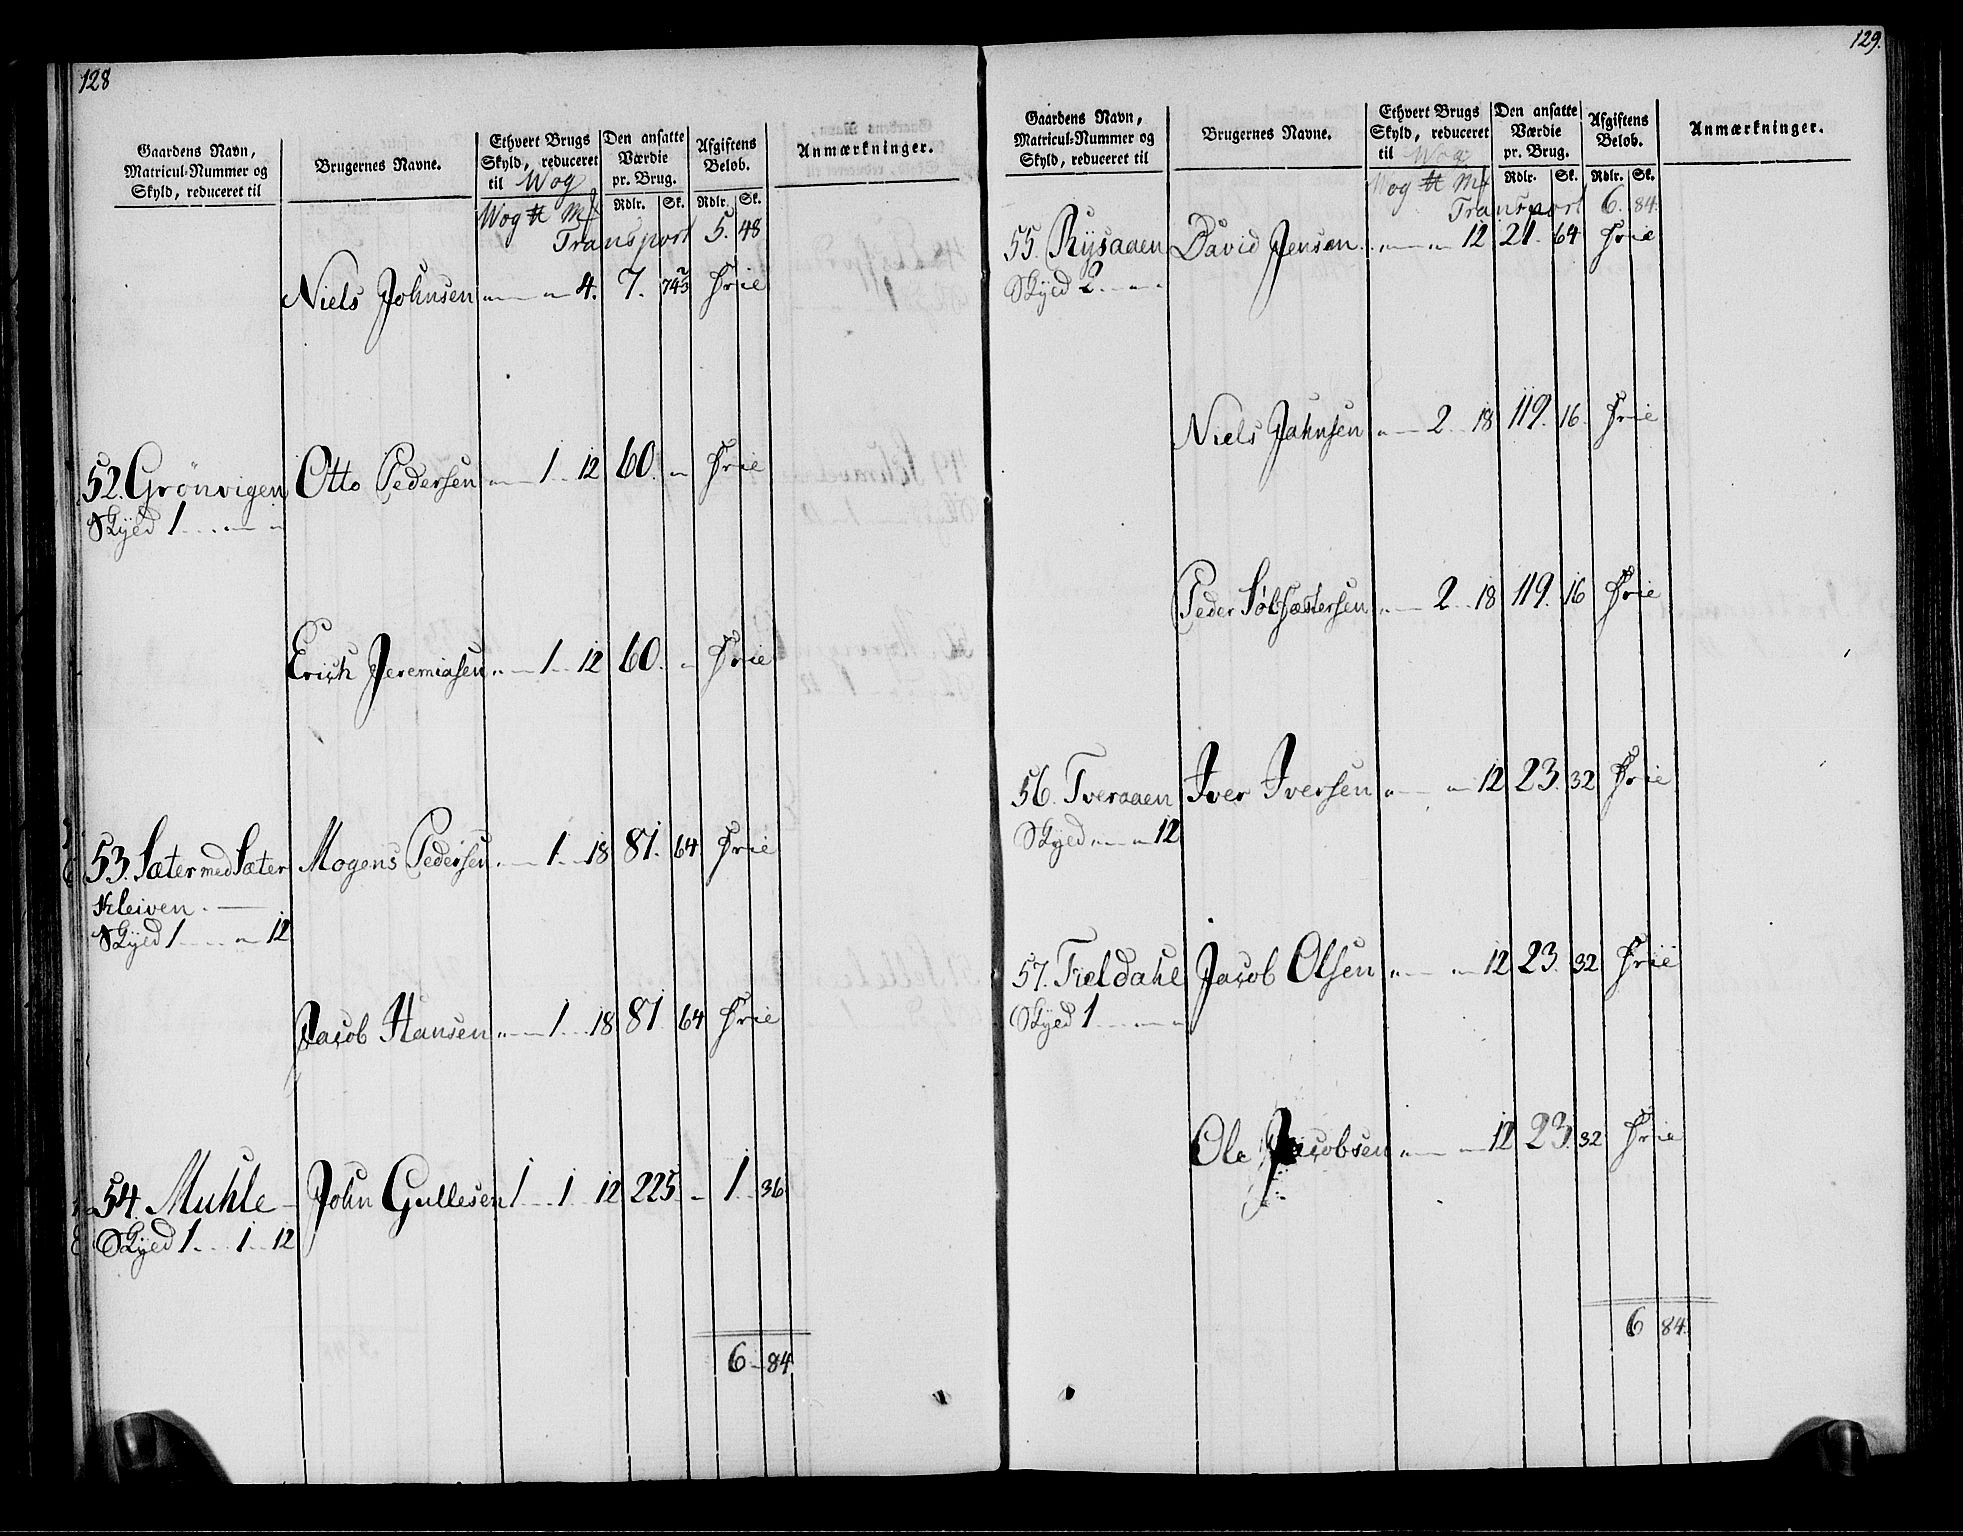 128
Gaardens Navn, Matricul-Nummer og Skyld, reduceret til | Brugernes Navne. | Ethvert Brugs Skyld, reduceret til Wog | Den ansatte Værdie pr. Brug. | Afgiftens Belob. | Anmærkninger.
Wog ℔ Mk | Rdlr. | Sk. | Rdlr. | Sk.
Transport 5. 48
Niels Johnsen „ — „ — 4. 7. 74 2/3 Frie
52. Grönvigen Otto Pedersen „ — 1 .. 12 60. „ Frie
Skyld 1 ... „ — „
Erich Jeremiasen „ — 1 .. 12 60. „ Frie
53. Sæter med Sæter Mogens Pedersen „ — 1 .. 18 81. 64 Frie
Kleiven. —
Skyld 1 ... „ — 12
Jacob Hansen „ — 1 ... 18 81 64 Frie
54. Muhle — John Gullesen 1 — 1 .. 12 225 „ 1. 36.
Skyld 1 ... 1 .. 12
6 — 84
129.
Gaardens Navn, Matricul-Nummer og Skyld, reduceret til | Brugernes Navne. | Ethvert Brugs Skyld, reduceret til Wog | Den ansatte Værdie pr. Brug. | Afgiftens Belob. | Anmærkninger.
Wog ℔ Mk | Rdlr. | Sk. | Rdlr. | Sk.
Transport 6. 84.
55. Rysaaen David Jensen „ — „ 12 21. 64 Frie
Skyld 2 ... — .
Niels Johnsen „ — 2 .. 18 119. 16. Frie
Peder Sölfæstersen „ — 2 .. 18 119. 16 Frie
56. Tveraaen Iver Iversen „ — „ — 12 23. 32 Frie
Skyld „ — „ — 12
57. Fieldahl Jacob Olsen „ — „ — 12 23. 32 Frie
Skyld 1 ... — „
Ole Jacobsen „ — „ — 12 23. 32 Frie
6 84.